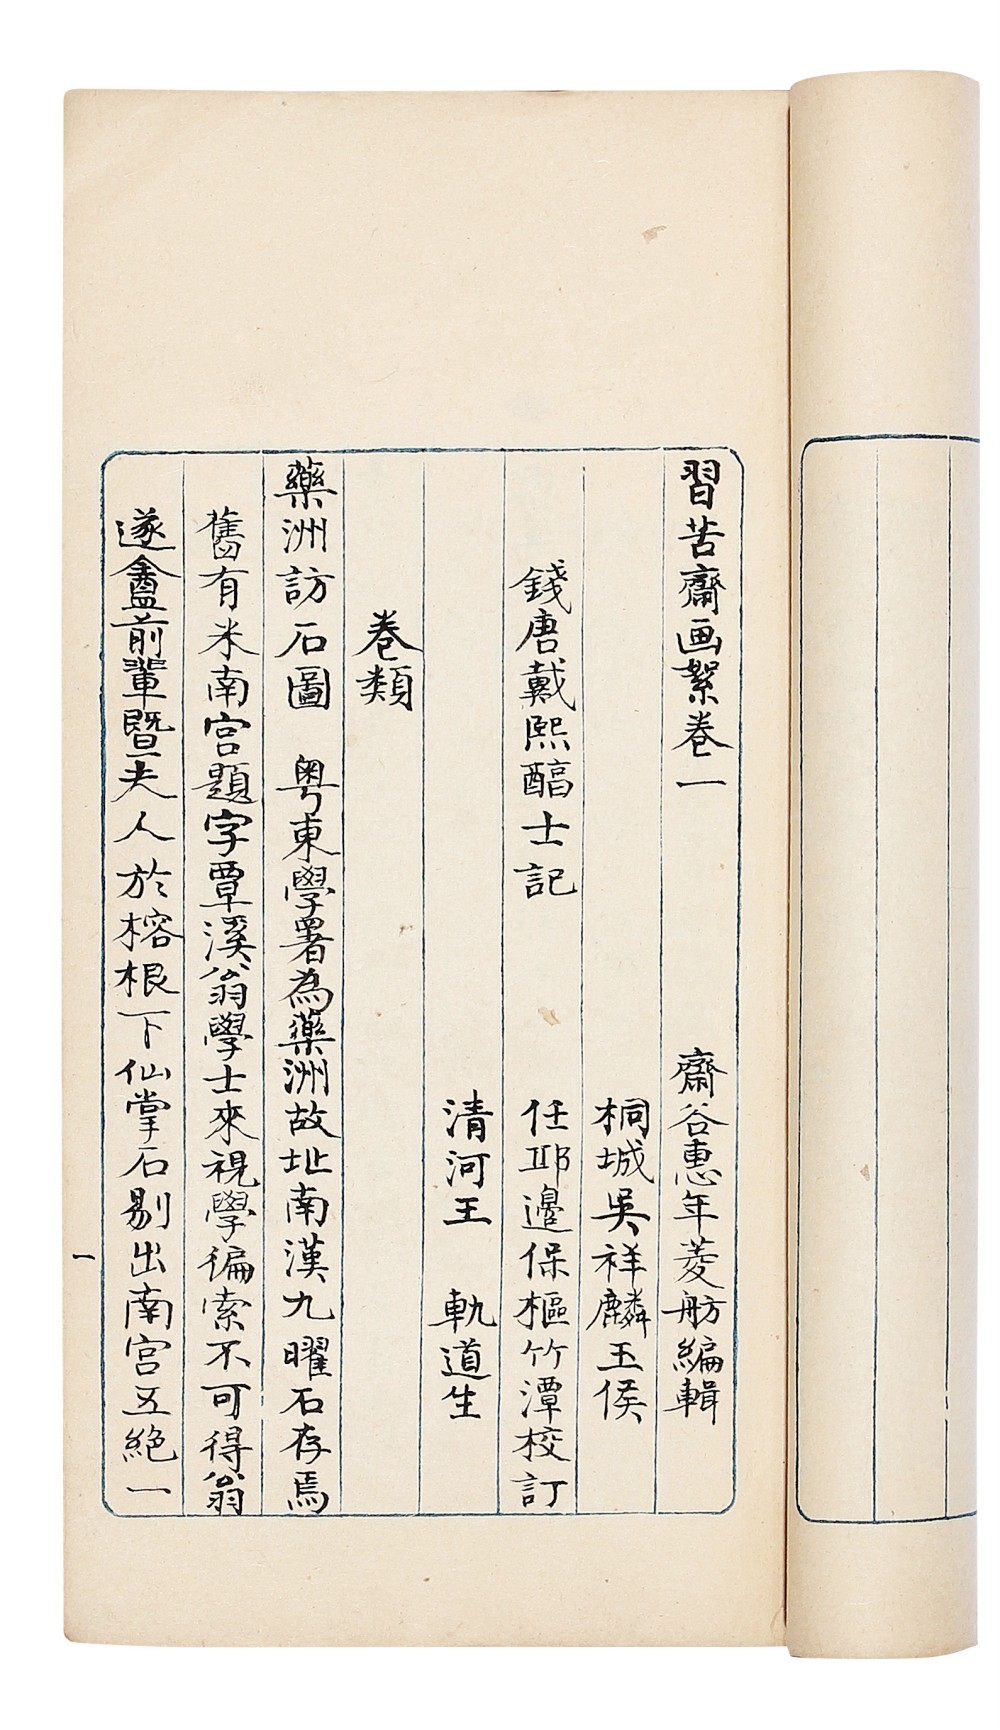 習苦齋画絮卷一
齋谷惠年菱舫編輯
桐城吳祥麟玉侯
錢唐戴熙醕士記
任邱邊保樞竹潭校訂
清河王 軌道生
卷類
藥洲訪石圖 粵東學署為藥洲故址南漢九曜石存焉
舊有米南宮題字覃溪翁學士來視學徧索不可得翁
遂盦前輩暨夫人於榕根下仙掌石剔出南宮五絕一
一